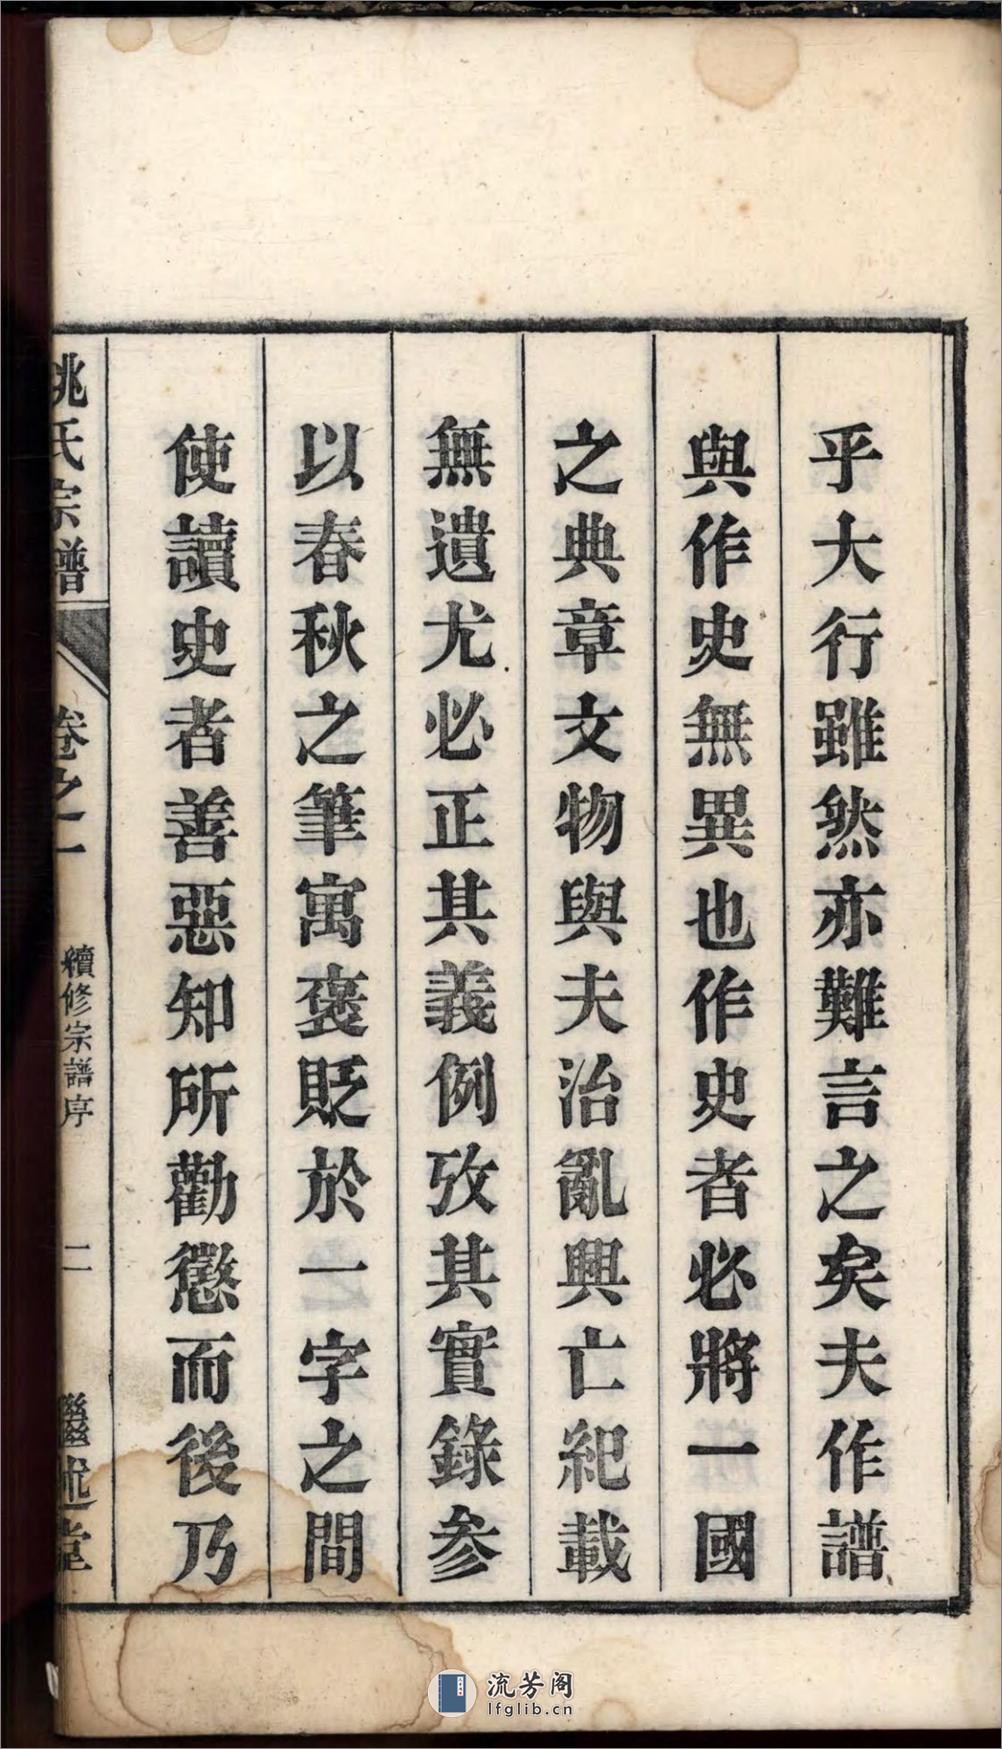 乎大行雖然亦難言之矣夫作譜
與作史無異也作史者必將一國
之典章文物與夫治亂興亡紀載
無遺尤必正其義例攷其實錄參
以春秋之筆寓褒貶於一字之間
使讀史者善惡知所勸懲而後乃
姚氏宗譜
卷之一
續修宗譜序
二
繼述堂
流芳阁
lfglib.cn